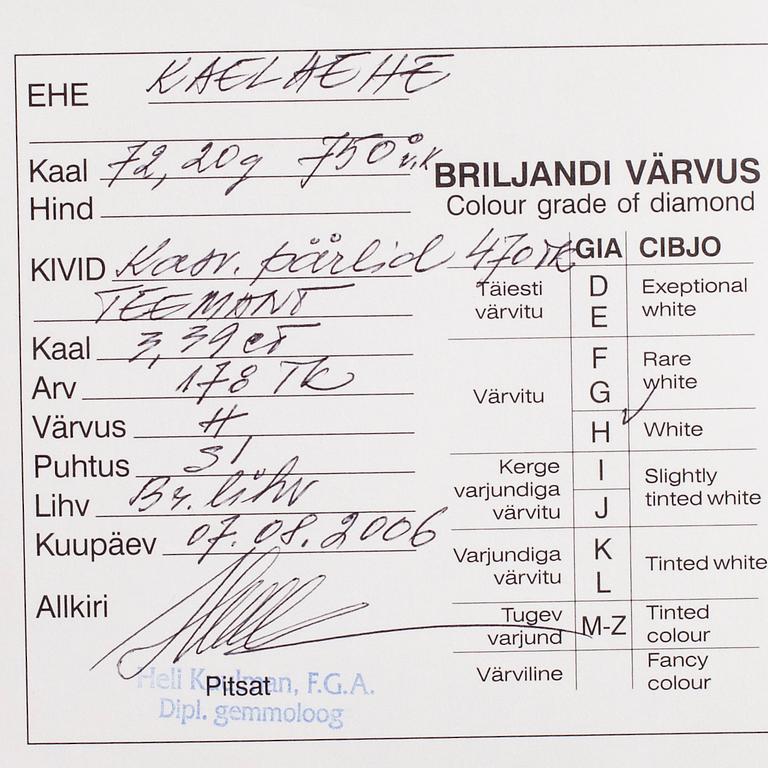 EHE KAELAEHE
Kaal 72,20g 750°
Hind
KIVID Kasv. pärlid 470 TK
TEEMANT
Kaal 3,39 ct
Arv 178 TK
Värvus H
Puhtus SI
Lihv Br. lihv
Kuupäev 07.08.2006
Allkiri
Pitsat
Heli Kaufman, F.G.A.
Dipl. gemmoloog
BRILJANDI VÄRVUS
Colour grade of diamond
GIA CIBJO
Täiesti värvitu D E Exeptional white
Värvitu F G Rare white
H White
Kerge varjundiga värvitu I J Slightly tinted white
Varjundiga värvitu K L Tinted white
Tugev varjund M-Z Tinted colour
Värviline Fancy colour